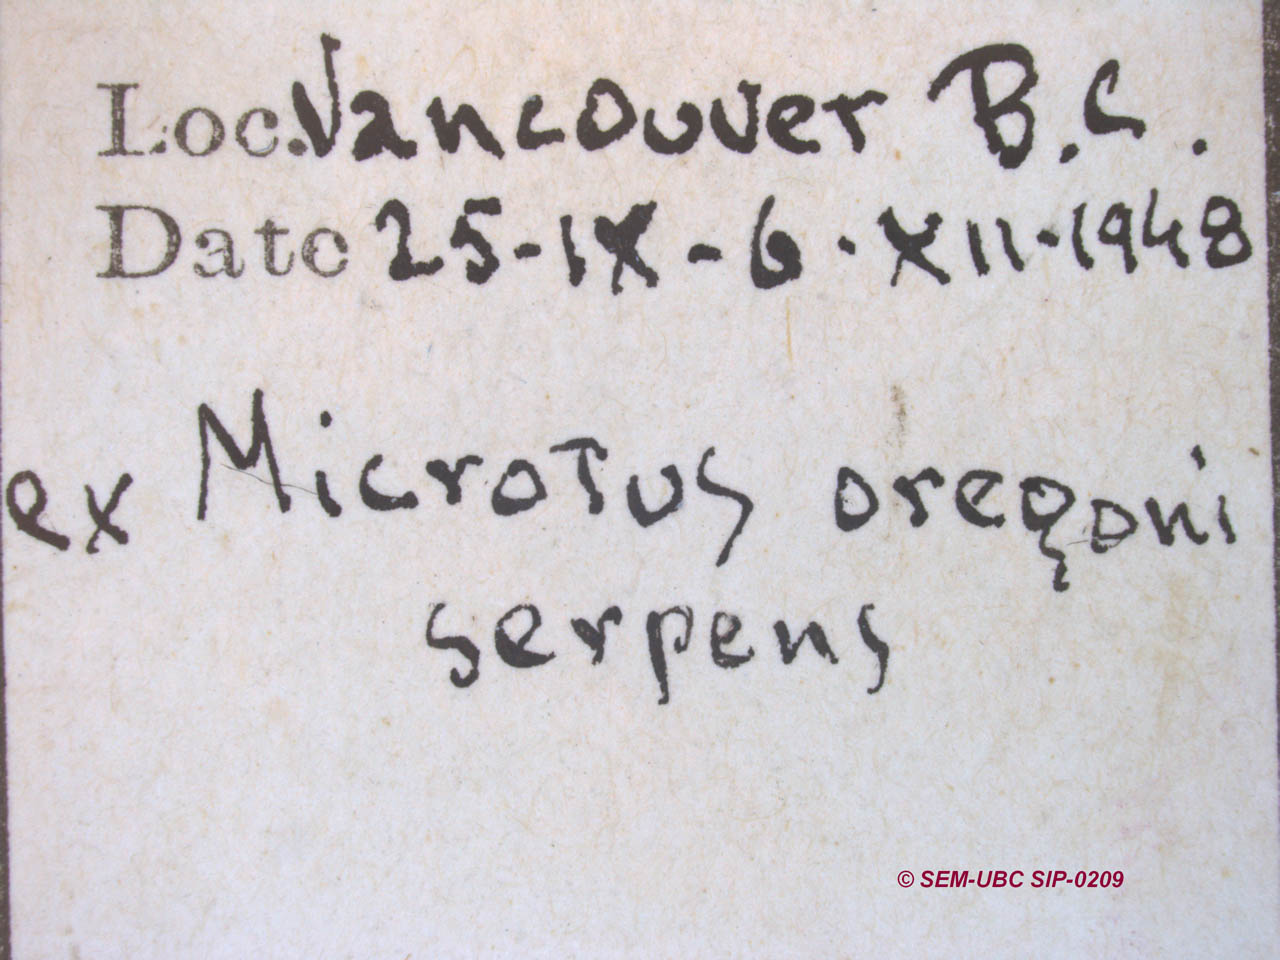 Loc. Vancouver B.C.
Date 25-IX-6.XII-1948
ex Microtus oregoni
serpens
© SEM-UBC SIP-0209